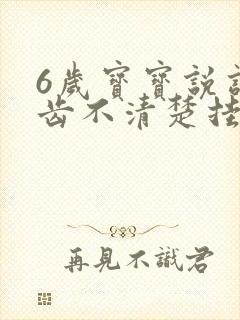 6歲寶寶說話
齒不清楚掛
再見不識君